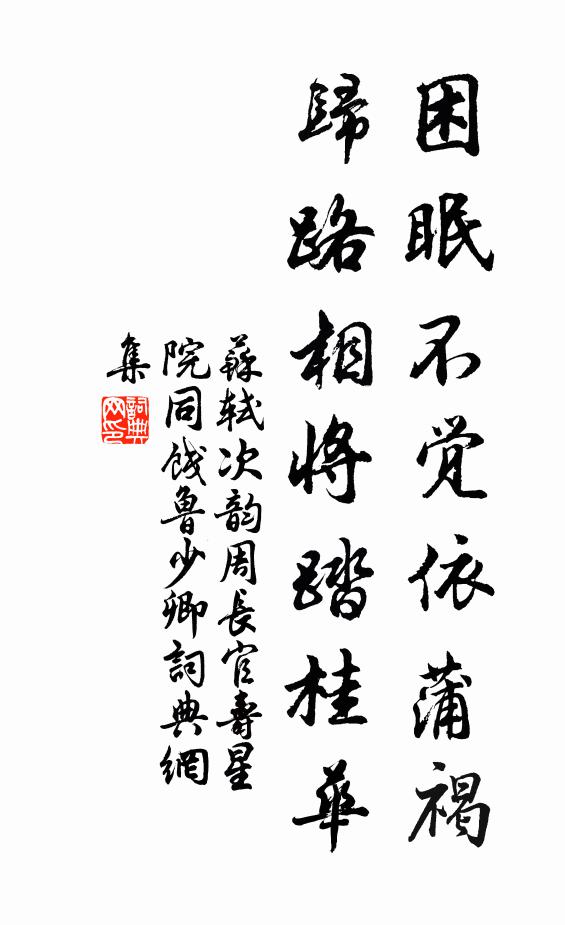 困眠不觉依蒲褐
歸路相將踏桂華
蘇軾次韵周長官壽星
院同餞魯少卿詞典網
集
詞典
网印